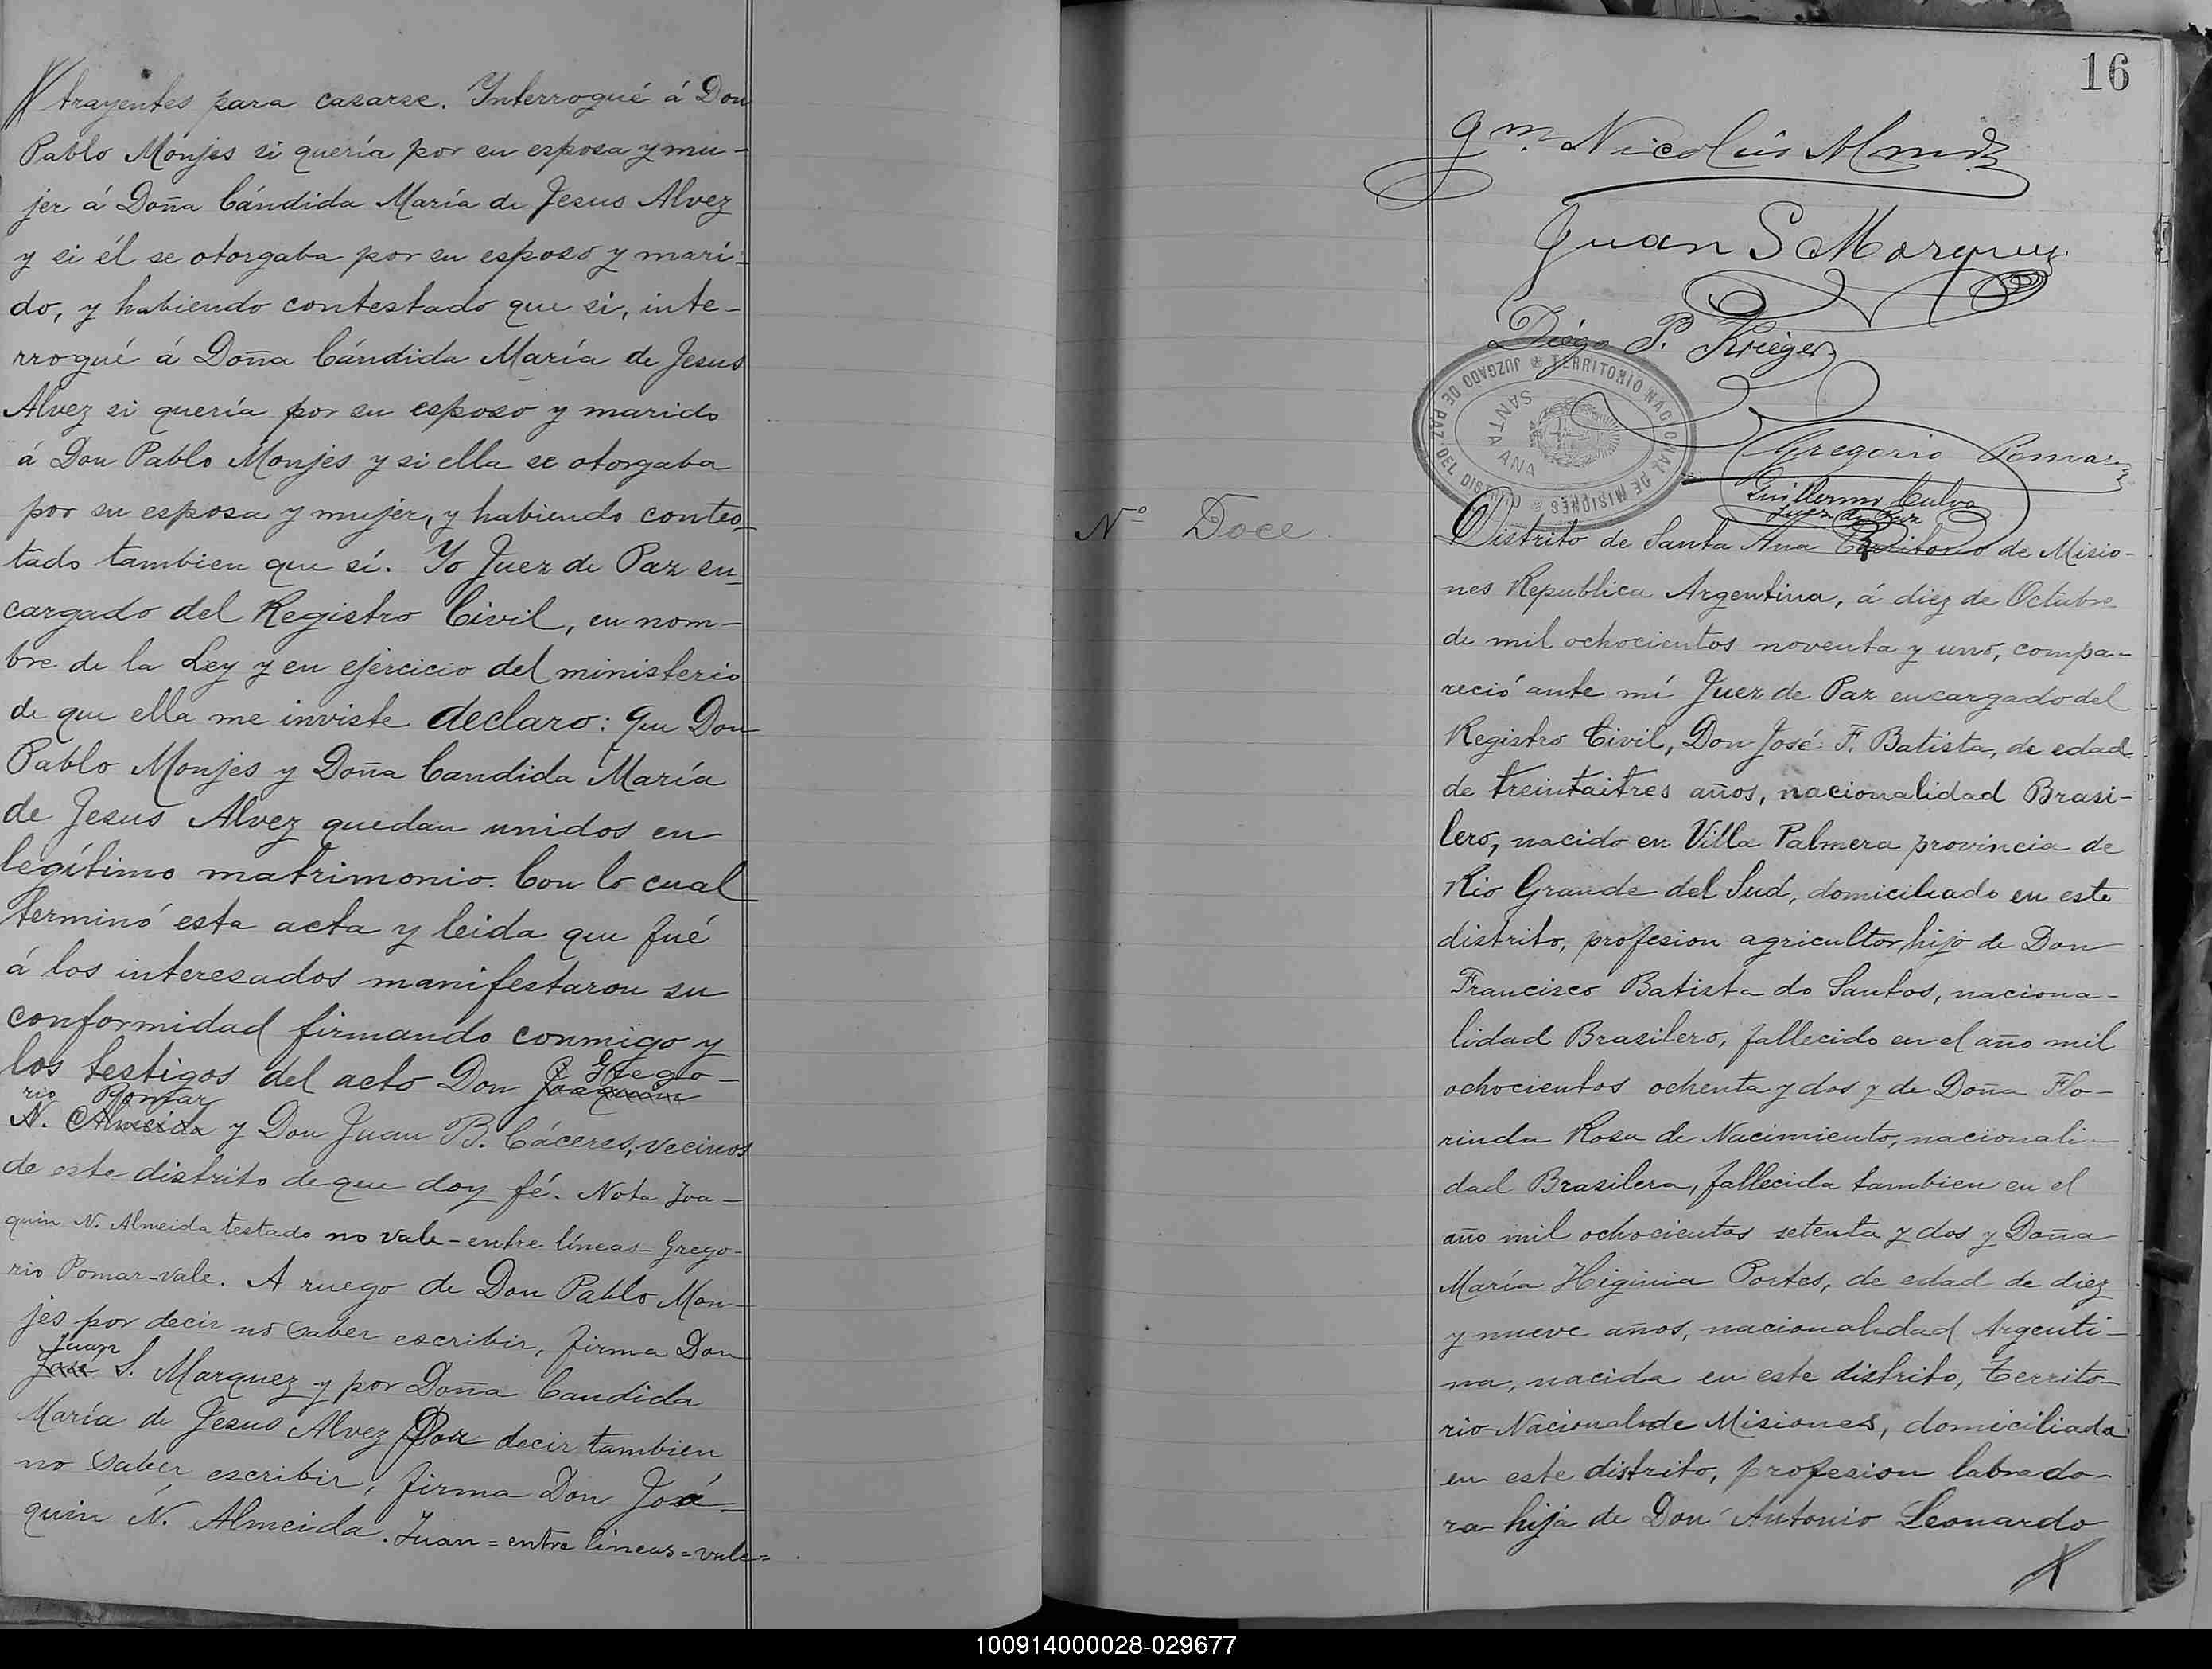 trayentes para casarse. Interrogué á Don
Pablo Monjes si quería por su esposa y mu-
jer á Doña Cándida María de Jesus Alvez
y si él se otorgaba por su esposo y mari-
do, y habiendo contestado que si, inte-
rrogué á Doña Cándida María de Jesus
Alvez si quería por su esposo y marido
á Don Pablo Monjes y si ella se otorgaba
por su esposa y mujer, y habiendo contes-
tado tambien que sí. Yo Juez de Paz en-
cargado del Registro Civil, en nom-
bre de la Ley y en ejercicio del ministerio
de que ella me inviste declaro: Que Don
Pablo Monjes y Doña Candida María
de Jesus Alvez quedan unidos en
legítimo matrimonio. Con lo cual
terminó esta acta y leida que fué
á los interesados manifestaron su
conformidad firmando conmigo y
los testigos del acto Don Joaquin Grego-
rio Pomar
N. Almeida y Don Juan B. Cáceres, vecinos
de este distrito de que doy fé. Nota Joa-
quin N. Almeida testado no vale - entre líneas - Grego-
rio Pomar - vale. A ruego de Don Pablo Mon-
jes por decir no saber escribir, firma Don
Juan
José S. Marquez y por Doña Candida
María de Jesus Alvez por decir tambien
no saber escribir, firma Don Joa-
quin N. Almeida. Juan = entre líneas = vale =
16
Juan S Marquez
Diégo P. Krieger
JUZGADO DE PAZ DEL DISTRITO TERRITORIO NACIONAL DE MISIONES
SANTA ANA
Gregorio Pomar
Guillermo Calvo
Juez de Paz
Nº Doce
Distrito de Santa Ana Territorio de Misio-
nes Republica Argentina, á diez de Octubre
de mil ochocientos noventa y uno, compa-
reció ante mí Juez de Paz encargado del
Registro Civil, Don José F. Batista, de edad
de treintaitres años, nacionalidad Brasi-
lero, nacido en Villa Palmera provincia de
Rio Grande del Sud, domiciliado en este
distrito, profesion agricultor, hijo de Don
Francisco Batista do Santos, naciona-
lidad Brasilero, fallecido en el año mil
ochocientos ochenta y dos y de Doña Flo-
rinda Rosa de Nacimiento, nacionali-
dad Brasilera, fallecida tambien en el
año mil ochocientos setenta y dos y Doña
María Higinia Portes, de edad de diez
y nueve años, nacionalidad Argenti-
na, nacida en este distrito, Territo-
rio Nacional de Misiones, domiciliada
en este distrito, profesion labrado-
ra hija de Don Antonio Leonardo
100914000028-029677